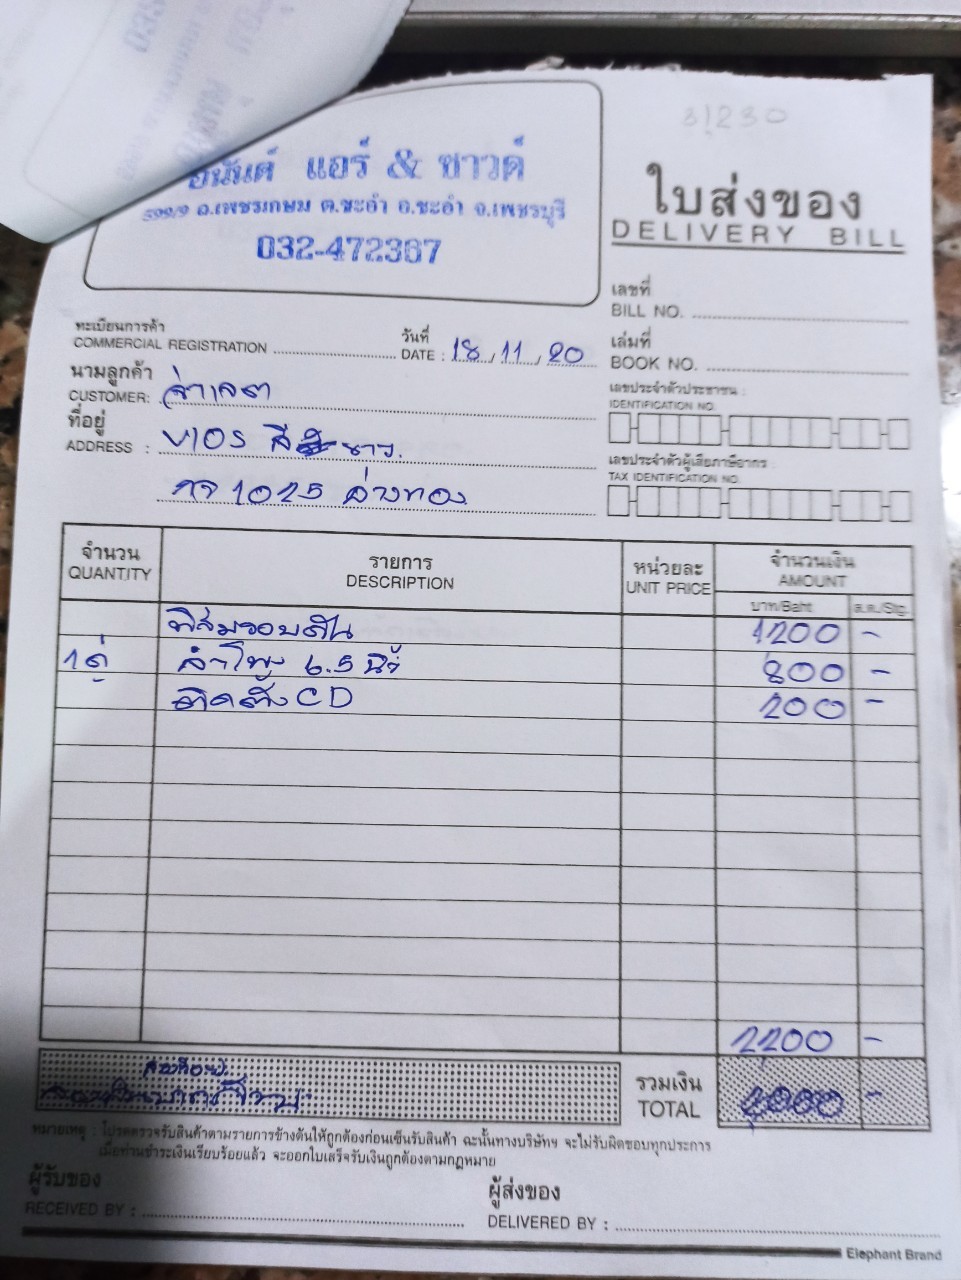 31230
อนันต์ แอร์ & ซาวด์
599/9 ถ.เพชรเกษม ต.ชะอำ อ.ชะอำ จ.เพชรบุรี
032-472367
ใบส่งของ
DELIVERY BILL
เลขที่
BILL NO.
ทะเบียนการค้า
COMMERCIAL REGISTRATION
วันที่
DATE : 18 / 11 / 20
เล่มที่
BOOK NO.
นามลูกค้า
CUSTOMER:
เลขประจำตัวประชาชน :
IDENTIFICATION NO.
ที่อยู่
ADDRESS : VIOS สี ขาว.
เลขประจำตัวผู้เสียภาษีอากร :
TAX IDENTIFICATION NO.
กจ 1025 อ่างทอง
จำนวน รายการ หน่วยละ จำนวนเงิน
QUANTITY DESCRIPTION UNIT PRICE AMOUNT
บาท/Baht ส.ต./Stg.
รอบคัน 1200 -
1คู่ ลำโพง 6.5 นิ้ว 800 -
ติดตั้ง CD 200 -
2200 -
รวมเงิน
TOTAL 2000 -
หมายเหตุ : โปรดตรวจรับสินค้าตามรายการข้างต้นให้ถูกต้องก่อนเซ็นรับสินค้า ฉะนั้นทางบริษัทฯ จะไม่รับผิดชอบทุกประการ
เมื่อท่านชำระเงินเรียบร้อยแล้ว จะออกใบเสร็จรับเงินถูกต้องตามกฎหมาย
ผู้รับของ
RECEIVED BY :
ผู้ส่งของ
DELIVERED BY :
Elephant Brand